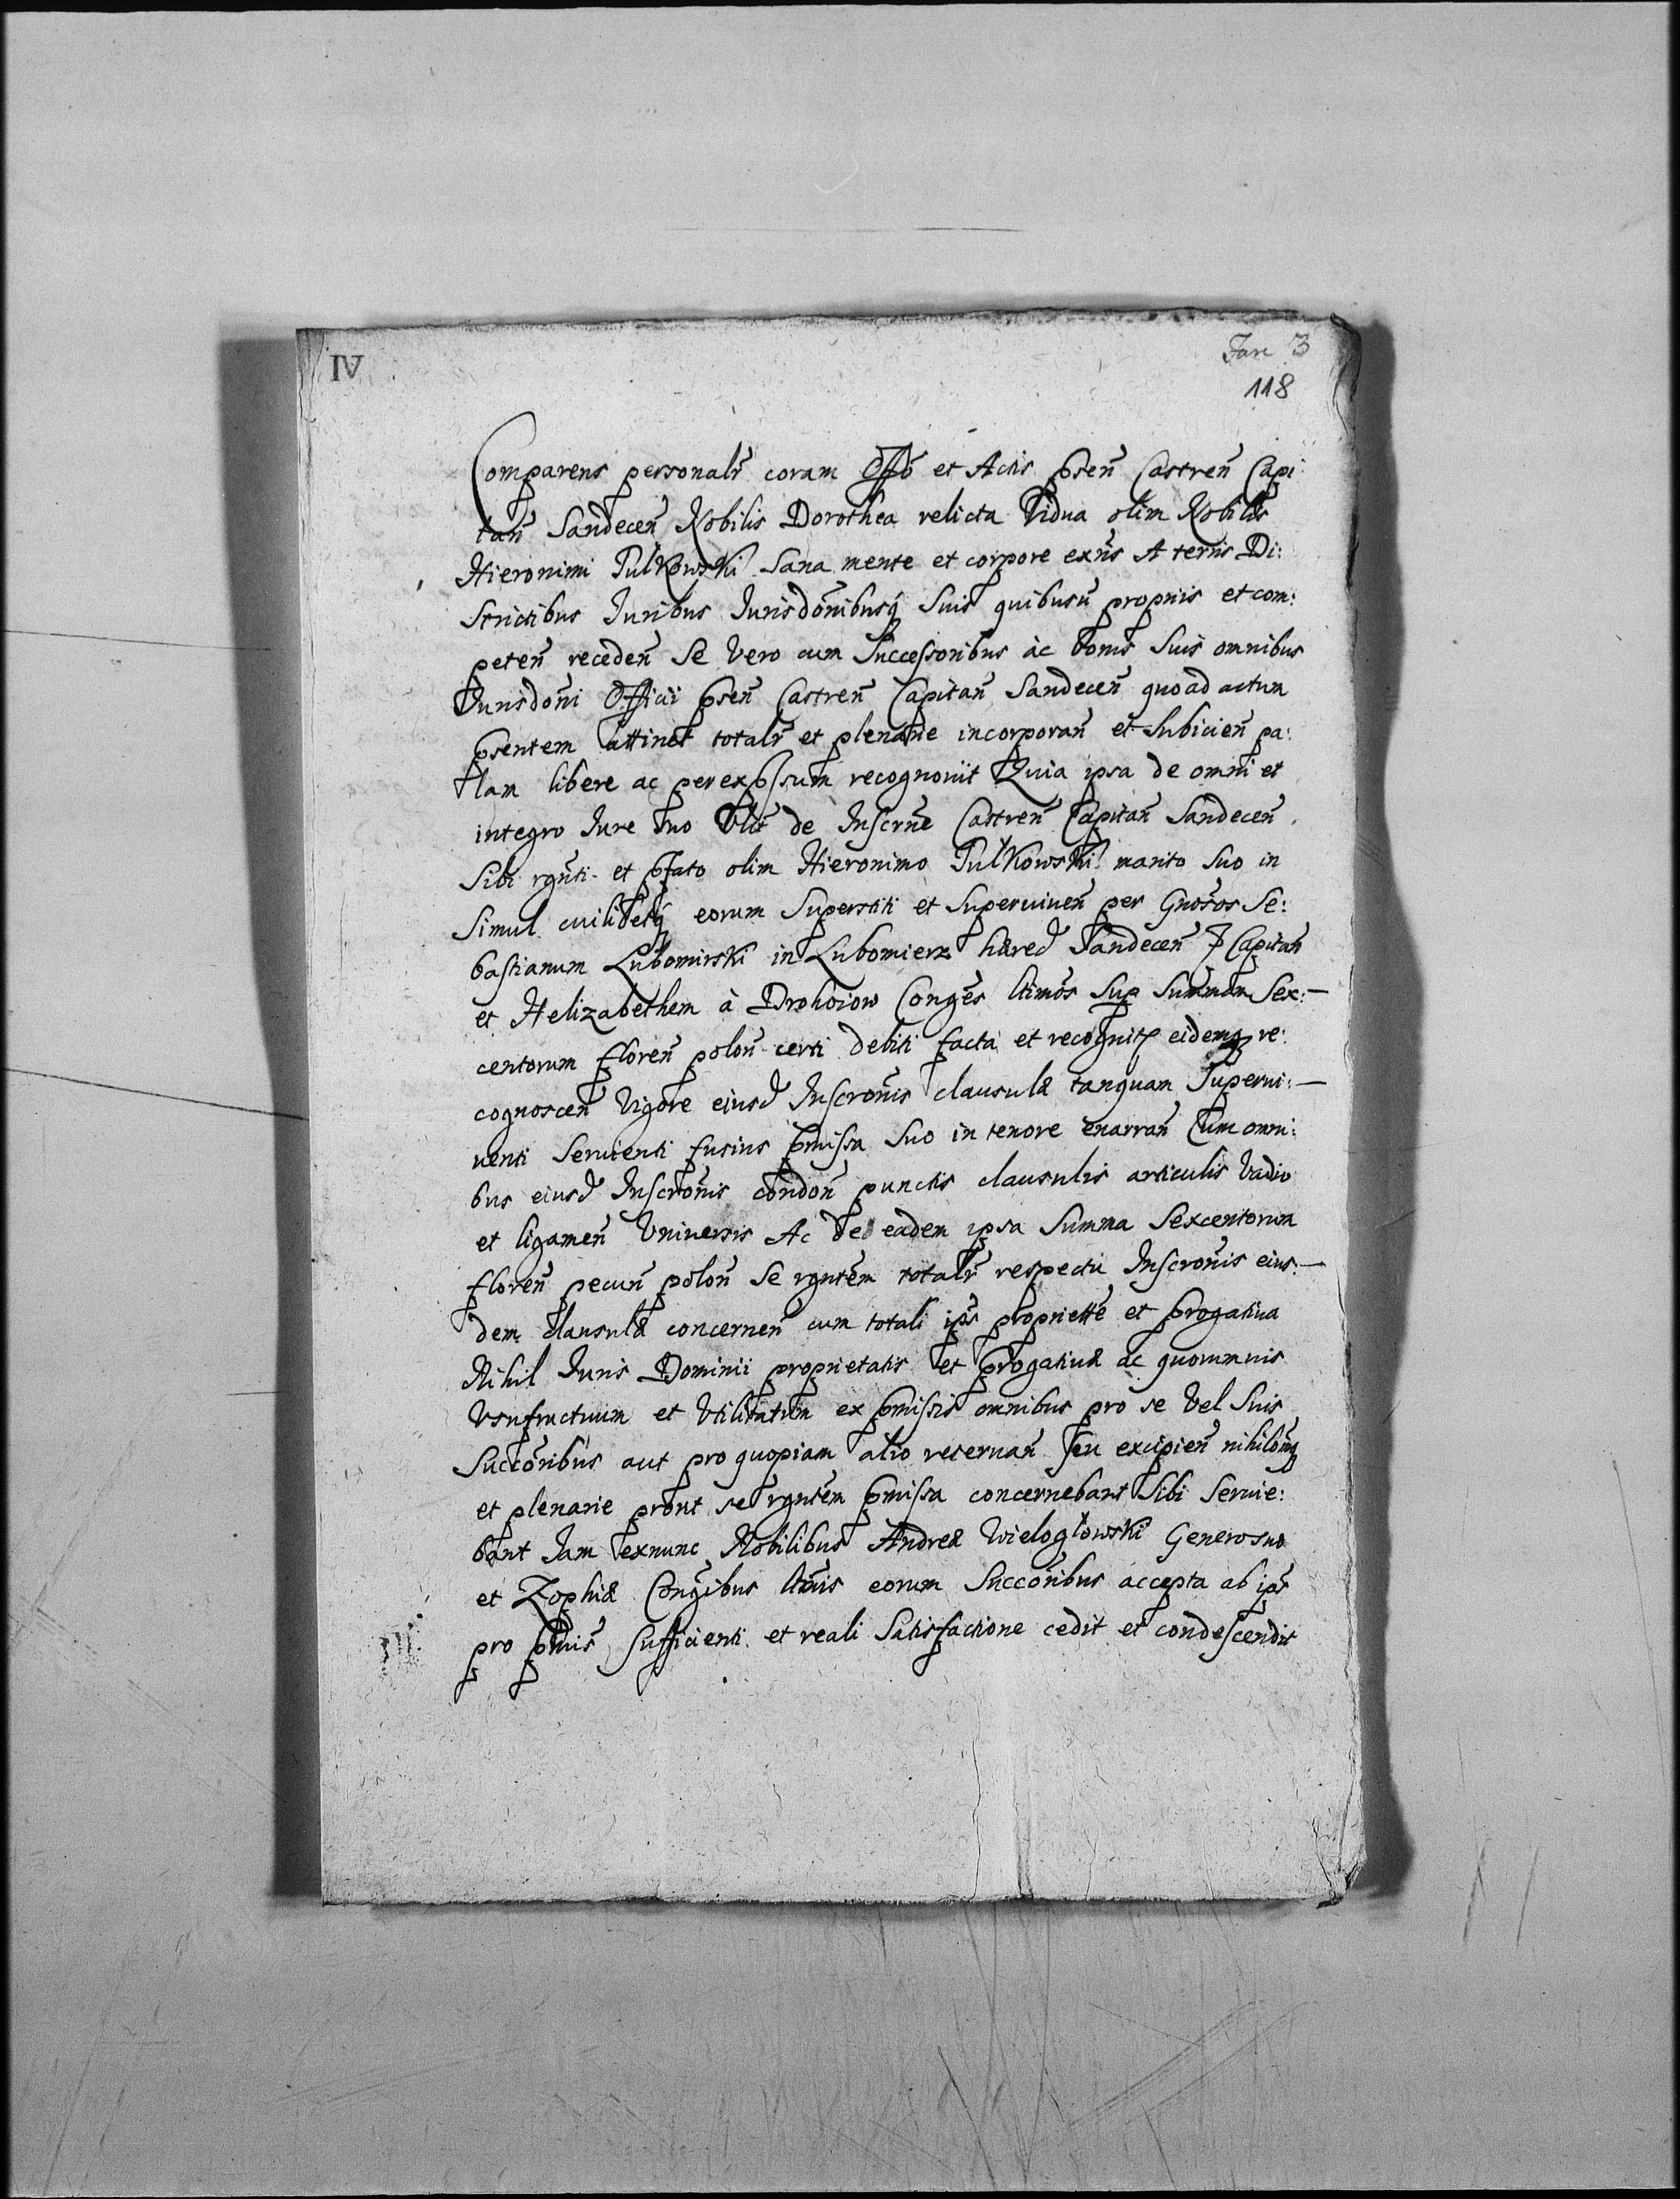 IV
Fasc 3
118
Comparens personalr̃ coram Offõ et Actis p̃sen̄ Castren̄ Capi:
tan̄ Sandecen̄ Nobilis Dorothea relicta Vidua olim Nobilis
Hieronimi Pulkowski Sana mente et corpore exn̄s A terris Di:
strictibus Iuribus Iurisdõnibusq̃ Suis quibusũ proprijs et com:
peten̄ receden̄ Se Vero cum Successoribus ac bonis Suis omnibus
Iurisdõni Officii p̃sen̄ Castren̄ Capitan̄ Sandecen̄ quoad actum
p̃sentem attinet totalr̃ et plenarie incorporan̄ et Subicien̄ pa:
lam libere ac per exp̃ssum recognovit Quia ipsa de omni et
integro Iure Suo de Inscrn̄e Castren̄ Capitan̄ Sandecen̄
Sibi rgñti et p̃fato olim Hieronimo Pulkowski marito Suo in
Simul cuilibetq̃ eorum Superstiti et Superuiuen̄ per Gnõsos Se:
bastianum Lubomirski in Lubomierz hæred Sandecen̄ Capitan̄
et Helizabethem à Drohoiow Congẽs ltimõs Sup Summam Sex:
centorum floren̄ polon̄ certi debiti facta et recognit eidemq̃ re:
cognoscen̄ Vigore eiusd Inscrõnis clausulæ tanquam Superui:
uenti Seruienti fusius p̃missa Suo in tenore enarran̄ Cum omni:
bus eiusd Inscrõnis condõn punctis clausulis articulis Vadio
et ligamen̄ Vniuersis Ac de eadem ipsa Summa Sexcentorum
floren̄ pecun̄ polon̄ Se rgñtem totalr̃ respectu Inscrõnis eius:
dem clausulæ concernen̄ cum totali ip̃s proprietẽ et p̃rogatiua
Nihil Iuris Dominii proprietatis et p̃rogatiuæ ac quorumuis
Vsufructuum et Vtilitatum ex p̃missis omnibus pro se Vel Suis
Succõribus aut pro quopiam alio reseruan̄ seu excipien̄ nihilõq̃
et plenarie prout se rgñtem p̃missa concernebant Sibi Seruie:
bant Iam exnunc Nobilibus Andreæ Wielogłowski Generosus
et Zophiæ Congibus ltimis eorum Succõribus accepta ab ip̃s
pro p̃mis Sufficienti et reali Satisfactione cedit et condescendit